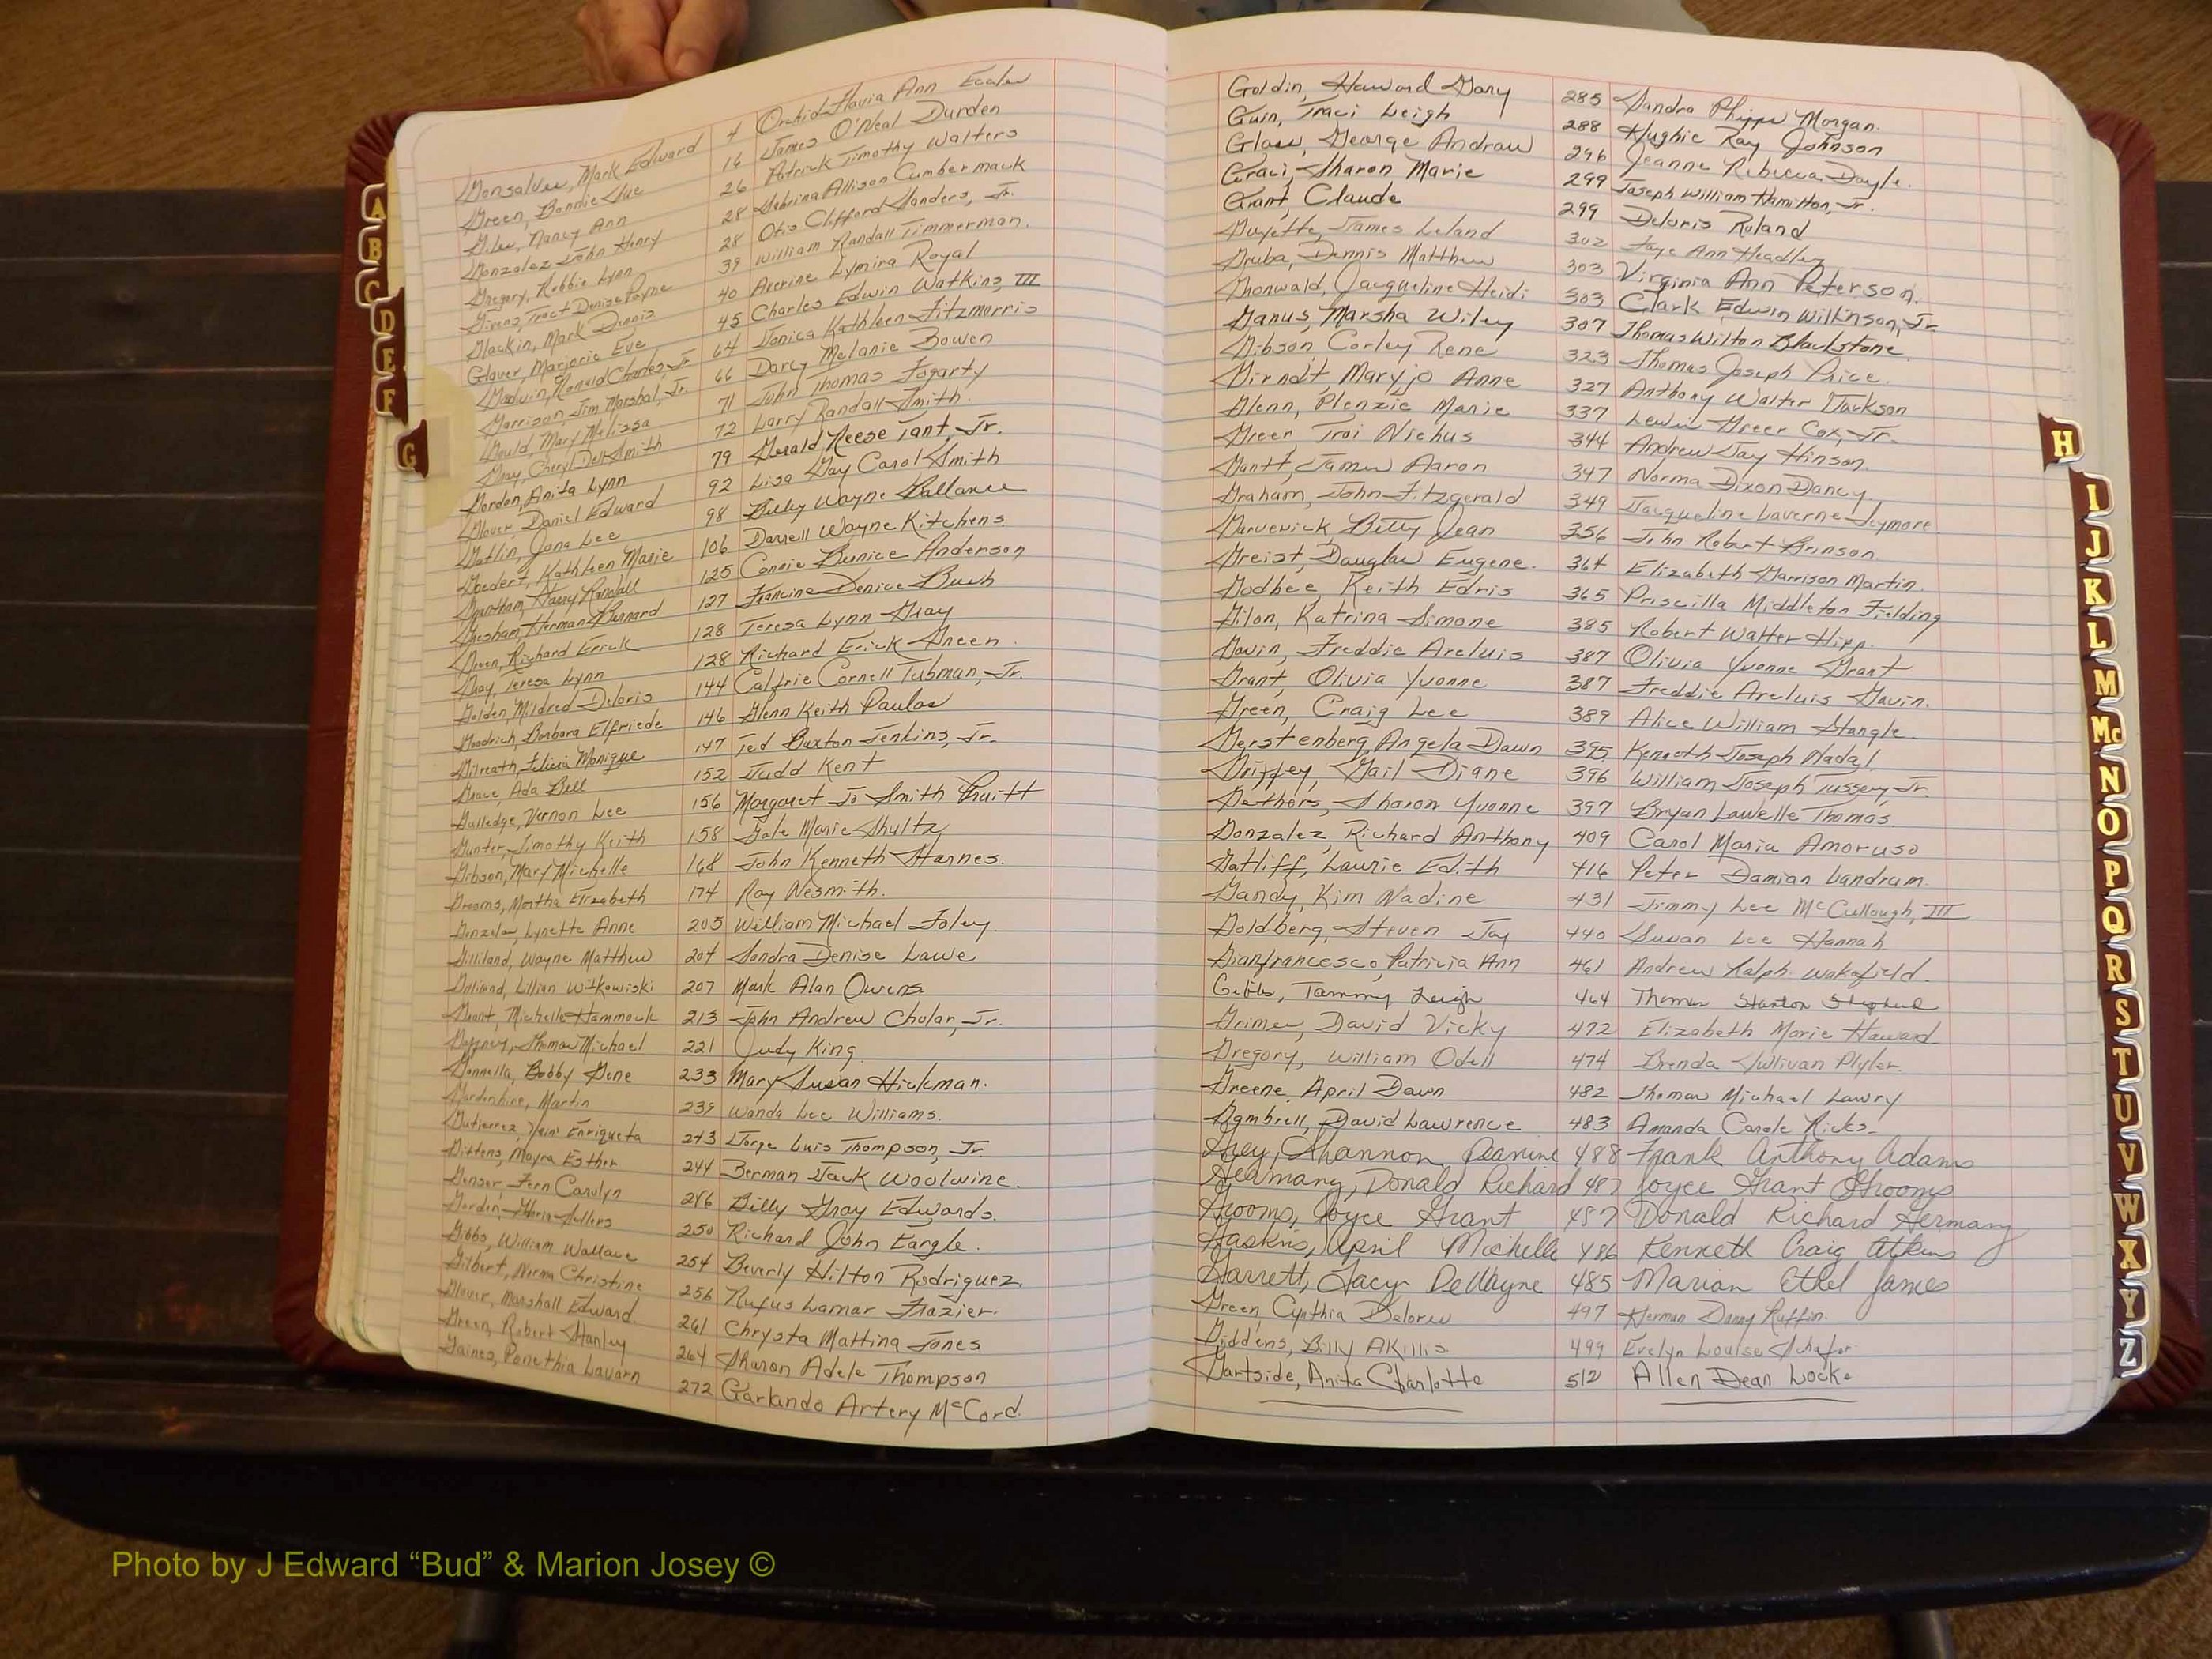 Gonsalves, Mark Edward 4 Orchid Flavia Ann Eccles
Green, Bonnie Sue 16 James O'Neal Durden
Giles, Nancy Ann 26 Patrick Timothy Walters
Gonzalez John Henry 28 Sabrina Allison Cumbermack
Gregory, Robbie Lynn 28 Otis Clifford Sanders, Jr.
Givens, Traci Denise Payne 39 William Randall Timmerman.
Glackin, Mark Dennis 40 Averine Lymira Royal
Glover, Marjorie Eve 45 Charles Edwin Watkins, III
Godwin, Ronald Charles, Jr 64 Jonica Kathleen Fitzmorris
Garrison, Jim Marshal, Jr. 66 Darcy Melanie Bowen
Gould, Mary Melissa 71 John Thomas Fogarty
Gray, Cheryl Dell Smith 72 Larry Randall Smith.
Gordon, Anita Lynn 79 Gerald Reese Tant, Jr.
Glover, Daniel Edward 92 Lisa Gay Carol Smith
Gatlin, Jona Lee 98 Billy Wayne Ballance
Goedert, Kathleen Marie 106 Darrell Wayne Kitchens
Grantham, Harry Randall 125 Connie Bunice Anderson
Gresham, Herman Bernard 127 Francine Denice Bush
Green, Richard Erick 128 Teresa Lynn Gray
Gray, Teresa Lynn 128 Richard Erick Green.
Golden, Mildred Deloris 144 Calfrie Cornell Tubman, Jr.
Goodrich, Barbara Elfriede 146 Glenn Keith Paulas
Gilreath, Felicia Monique 147 Ted Buxton Jenkins, Jr.
Grace, Ada Bell 152 Judd Kent
Gulledge, Vernon Lee 156 Margaret Jo Smith Pruitt
Gunter, Timothy Keith 158 Gale Marie Shultz
Gibson, Mary Michelle 168 John Kenneth Starnes.
Grooms, Martha Elizabeth 174 Ray Nesmith.
Gonzales, Lynette Anne 203 William Michael Foley
Gilliland, Wayne Matthew 204 Sandra Denise Lawe
Gilliand, Lillian Witkowiski 207 Mark Alan Owens
Grant, Michelle Hammock 213 John Andrew Cholar, Jr.
Gaffney, Thomas Michael 221 Judy King
Gonnella, Bobby Gene 233 Mary Susan Hickman.
Gardenhire, Martin 239 Wanda Lee Williams.
Gutierrez, Enriqueta 243 Jorge Luis Thompson, Jr
Gittens, Mayra Esther 244 Berman Jack Woolwine.
Genser, Fern Carolyn 246 Billy Gray Edwards.
Gordon, Gloria Sellers 250 Richard John Eargle.
Gibbs, William Wallace 254 Beverly Hilton Rodriguez
Gilbert, Norma Christine 256 Rufus Lamar Frazier.
Glover, Marshall Edward. 261 Chrysta Mattina Jones
Green, Robert Stanley 264 Sharon Adele Thompson
Gaines, Ponethia Lavarn 272 Garlando Artery McCord.
Goldin, Howard Gary 285 Sandra Phipps Morgan.
Guin, Traci Leigh 288 Hughie Ray Johnson
Glass, George Andrew 296 Jeanne Rebecca Doyle.
Graci, Sharon Marie 299 Joseph William Hamilton, Jr.
Grant, Claude 299 Deloris Roland
Guyette, James Leland 302 Faye Ann Headley
Gruba, Dennis Matthew 303 Virginia Ann Peterson.
Gronwald, Jacqueline Heidi 303 Clark Edwin Wilkinson, Jr.
Ganus, Marsha Wiley 307 Thomas Wilton Blackstone
Gibson, Corley Rene 323 Thomas Joseph Price.
Girndt, Maryjo Anne 327 Anthony Walter Jackson
Glenn, Plenzie Marie 337 Lewis Greer Cox, Jr.
Greer, Troi Nichus 344 Andrew Jay Hinson.
Gantt, James Aaron 347 Norma Dixon Dancy
Graham, John Fitzgerald 349 Jacqueline Laverne Seymore
Garverick, Betty Jean 356 John Robert Brinson
Greist, Douglas Eugene. 364 Elizabeth Garrison Martin.
Godbee, Keith Edris 365 Priscilla Middleton Fielding
Gilon, Katrina Simone 385 Robert Walter Hipp.
Gavin, Freddie Areluis 387 Olivia Yvonne Grant
Grant, Olivia Yvonne 387 Freddie Areluis Gavin.
Green, Craig Lee 389 Alice William Stangle.
Gerstenberg, Angela Dawn 395 Kenneth Joseph Nadal
Griffey, Gail Diane 396 William Joseph Tussey, Jr.
Gethers, Sharon Yvonne 397 Bryan Lawelle Thomas
Gonzalez, Richard Anthony 409 Carol Maria Amoruso
Gatliff, Laurie Edith 416 Peter Damian Landrum
Gandy, Kim Nadine 431 Jimmy Lee McCullough, III
Goldberg, Steven Jay 440 Susan Lee Hannah
Gianfrancesco, Patricia Ann 461 Andrew Ralph Wakefield.
Gibbs, Tammy Leigh 464 Thomas Stanton Shepherd
Grimes, David Vicky 472 Elizabeth Marie Howard
Gregory, William Odell 474 Brenda Sullivan Plyler.
Greene, April Dawn 482 Thomas Michael Lowry
Gambrell, David Lawrence 483 Amanda Carole Ricks
Goey, Shannon Jeanine 488 Frank Anthony Adams
Germany, Donald Richard 487 Joyce Grant Grooms
Grooms, Joyce Grant 487 Donald Richard Germany
Gaskins, April Michelle 486 Kenneth Craig Atkins
Garrett, Lacy DeWayne 485 Marian Ethel James
Green, Cynthia Delores 497 Herman Danny Ruffin.
Giddens, Billy AKillis 499 Evelyn Louise Schafer
Gartside, Anita Charlotte 512 Allen Dean Locke
A
B
C
D
E
F
G
H
I
J
K
L
M
Mc
N
O
P
Q
R
S
T
U
V
W
X
Y
Z
Photo by J Edward “Bud” & Marion Josey ©